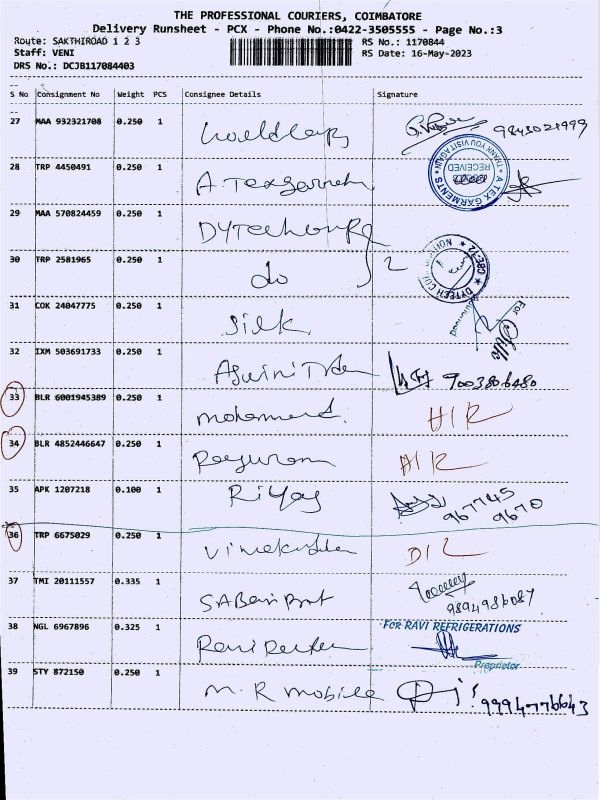 THE PROFESSIONAL COURIERS, COIMBATORE
Delivery Runsheet - PCX - Phone No.:0422-3505555 - Page No.:3
Route: SAKTHIROAD 1 2 3 RS No.: 1170844
Staff: VENI RS Date: 16-May-2023
DRS No.: DCJB117084403
S No Consignment No Weight PCS Consignee Details Signature
27 MAA 932321708 0.250 1
28 TRP 4450491 0.250 1 A. Tex
THANK YOU VISIT AGAIN RECEIVED A TEX GARMENTS
29 MAA 570824459 0.250 1
30 TRP 2581965 0.250 1 do 2
DYTECH CBE-12
31 COK 24047775 0.250 1 Silk For Silk
32 IXM 503691733 0.250 1 Aswini 9003806480
33 BLR 6001945389 0.250 1 mohammed.
34 BLR 4852446647 0.250 1
35 APK 1207218 0.100 1 Riyas 967745
9670
36 TRP 6675029 0.250 1
37 TMI 20111557 0.335 1
9894986087
38 NGL 6967896 0.325 1 For RAVI REFRIGERATIONS
Proprietor
39 STY 872150 0.250 1 M. R mobile 9994776643